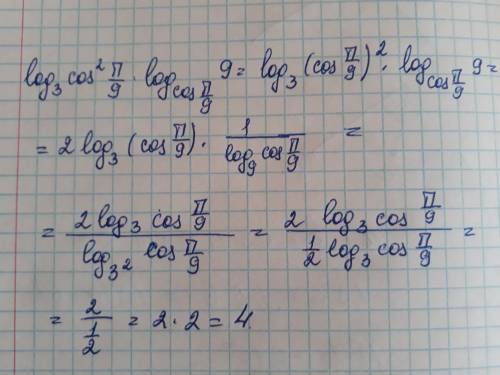 log₃ cos² π/9 · log_{cos π/9} 9 = log₃ (cos π/9)² · log_{cos π/9} 9 =
= 2 log₃ (cos π/9) · 1/(log₉ cos π/9) =
= (2 log₃ cos π/9)/(log_{3²} cos π/9) = (2 log₃ cos π/9)/(1/2 log₃ cos π/9) =
= 2/(1/2) = 2 · 2 = 4.